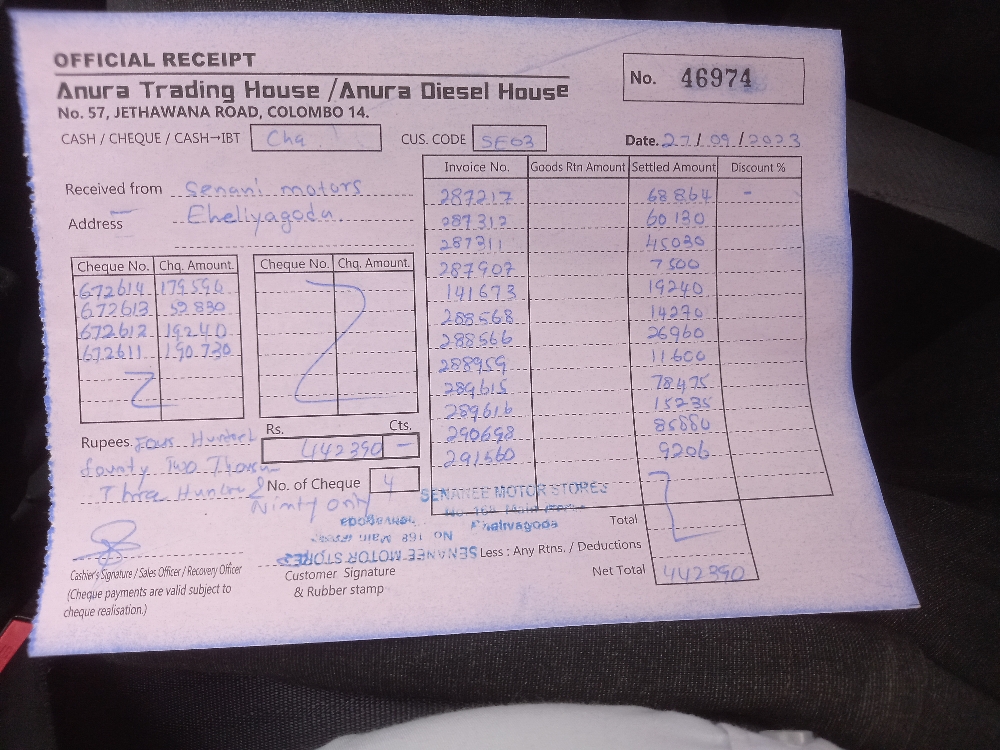 OFFICIAL RECEIPT
Anura Trading House /Anura Diesel House
No. 57, JETHAWANA ROAD, COLOMBO 14.
No. 46974
CASH / CHEQUE / CASH→IBT Chq CUS. CODE SE03 Date. 27/09/2023
Received from Senani motors
Address Eheliyagoda
Cheque No. Chq. Amount. Cheque No. Chq. Amount.
672614 179594
672613 52830
672612 19240
672611 190.730
Invoice No. Goods Rtn Amount Settled Amount Discount %
287217 68864 -
287312 60130
287311 45030
287907 7500
141673 19240
288568 14270
288566 26960
288959 11600
289615 78475
289616 15235
290698 85880
291560 9206
Rupees. Four Hundred
Rs. Cts.
442390 —
fourty Two Thousand
Three Hundred
Ninty only
No. of Cheque 4
SENANEE MOTOR STORES
No 168 Main
Eheliyagoda
SENANEE MOTOR STORES
No 168 Main
Total
Less : Any Rtns. / Deductions
Net Total 442390
Cashier's Signature / Sales Officer / Recovery Officer
(Cheque payments are valid subject to
cheque realisation.)
Customer Signature
& Rubber stamp